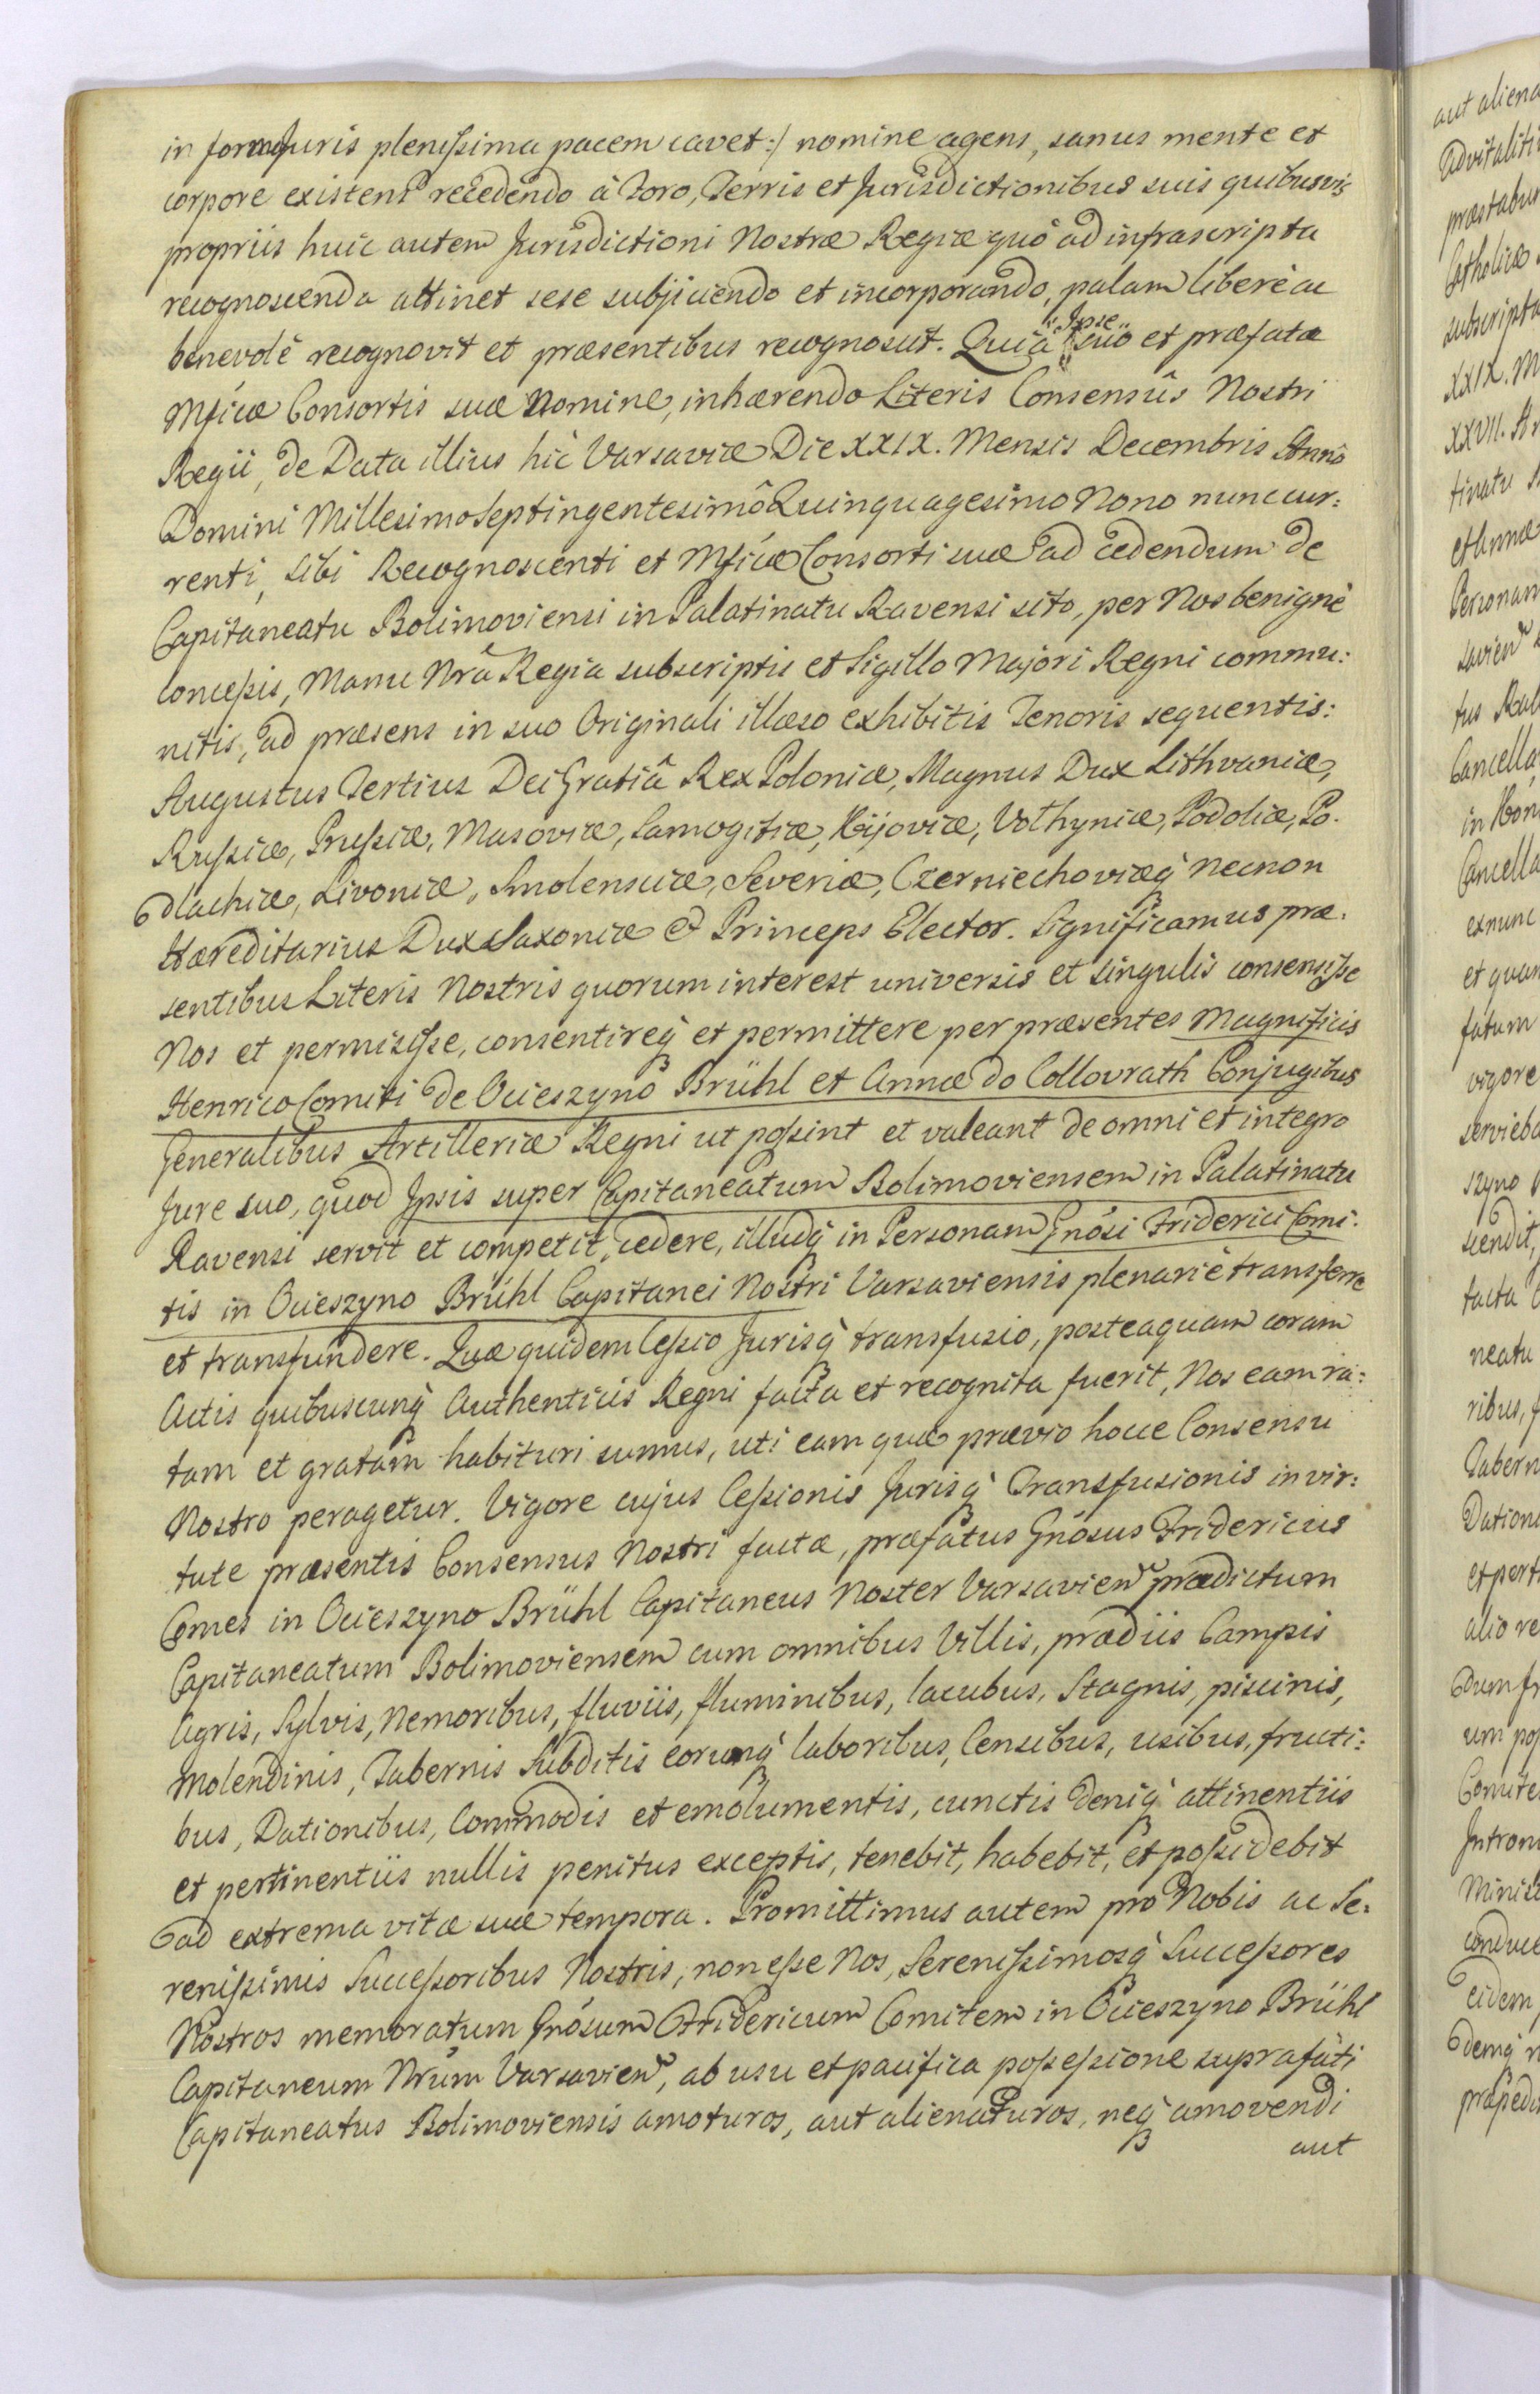 in forma Juris plenissima pacem cavet:/ nomine agens, sanus mente et
corpore existens recedendo à Foro, Terris et Jurisdictionibus suis quibusvis
propriis huic autem Jurisdictioni Nostræ Regiæ quò ad infrascripta
recognoscenda attinet sese subjiciendo et incorporando, palam liberè ac
benevolè recognovit et præsentibus recognoscit. Quià Ipse suo et præfatæ
Mficæ Consortis suæ Nomine, inhærendo Literis Consensûs Nostri
Regii, de Data illius hìc Varsaviæ Die XXIX. Mensis Decembris Annô
Domini Millesimo Septingentesimô Quinquagesimo Nono nunc cur:
renti, sibi Recognoscenti et Mficæ Consorti suæ ad cedendum de
Capitaneatu Bolimoviensi in Palatinatu Ravensi sito, per Nos benignè
concessis, Manu Nrâ Regia subscriptis et Sigillo Majori Regni commu:
nitis, ad præsens in suo Originali illæso exhibitis Tenoris sequentis:
Augustus Tertius Dei Gratiâ Rex Poloniæ, Magnus Dux Lithvaniæ,
Russiæ, Prussiæ, Masoviæ, Samogitiæ, Kijoviæ, Volhyniæ, Podoliæ, Po.
dlachiæ, Livoniæ, Smolensciæ, Severiæ, Czerniechoviæq̀ necnon
Hæreditarius Dux Saxoniæ & Princeps Elector. Significamus præ.
sentibus Literis Nostris quorum interest universis et singulis consensisse
Nos et permisisse, consentireq̀ et permittere per præsentes Magnificis
Henrico Comiti de Ocieszyno Brühl et Annæ de Collovrath Conjugibus
Generalibus Artilleriæ Regni ut possint et valeant de omni et integro
Jure suo, quod Ipsis super Capitaneatum Bolimoviensem in Palatinatu
Ravensi servit et competit, cedere, illudq̀ in Personam Gnôsi Friderici Comi.
tis in Ocieszyno Brühl Capitanei Nostri Varsaviensis plenariè transferre
et transfundere. Quæ quidem Cessio Jurisq̀ transfusio, posteaquam coram
Actis quibuscunq̀ Authenticis Regni facta et recognita fuerit, Nos eam ra:
tam et gratam habituri sumus, uti eam quæ prævio hocce Consensu
Nostro peragetur. Vigore cujus Cessionis Jurisq̀ Transfusionis in vir:
tute præsentis Consensus Nostri factæ, præfatus Gnôsus Fridericus
Comes in Ocieszyno Brühl Capitaneus Noster Varsavien prædictum
Capitaneatum Bolimoviensem cum omnibus Villis, prædiis Campis
Agris, Sylvis, Nemoribus, fluviis, fluminibus, lacubus, Stagnis, piscinis,
Molendinis, Tabernis Subditis eorumq̀ laboribus, Censibus, usibus, fructi:
bus, Dationibus, Commodis et emolumentis, cunctis deniq̀ attinentiis
et pertinentiis nullis penitus exceptis, tenebit, habebit, et possidebit
ad extrema vitæ suæ tempora. Promittimus autem pro Nobis ac Se:
renissimis Successoribus Nostris, non esse Nos, Serenissimosq̀ Successores
Nostros memoratum Gnôsum Fridericum Comitem in Ocieszyno Brühl
Capitaneum Nrum Varsavien, ab usu et pacifica possessione suprafati
Capitaneatus Bolimoviensis amoturos, aut alienaturos, neq̀ amovendi
aut
aut aliena
Advitaliti
præstabun
Catholicæ
subscripta
XXIX. M
XXVII. A
tinatu
et Annæ
Personam
savien
tus
Cancella
in
Cancella
exnunc
et quam
fatum
vigore
servieba
szyno
facta
neatu
ribus,
Tabern
Dation
et perti
alio re
um
Comite
Introm
Minis
conduc
eidem
demq̀
præpedi